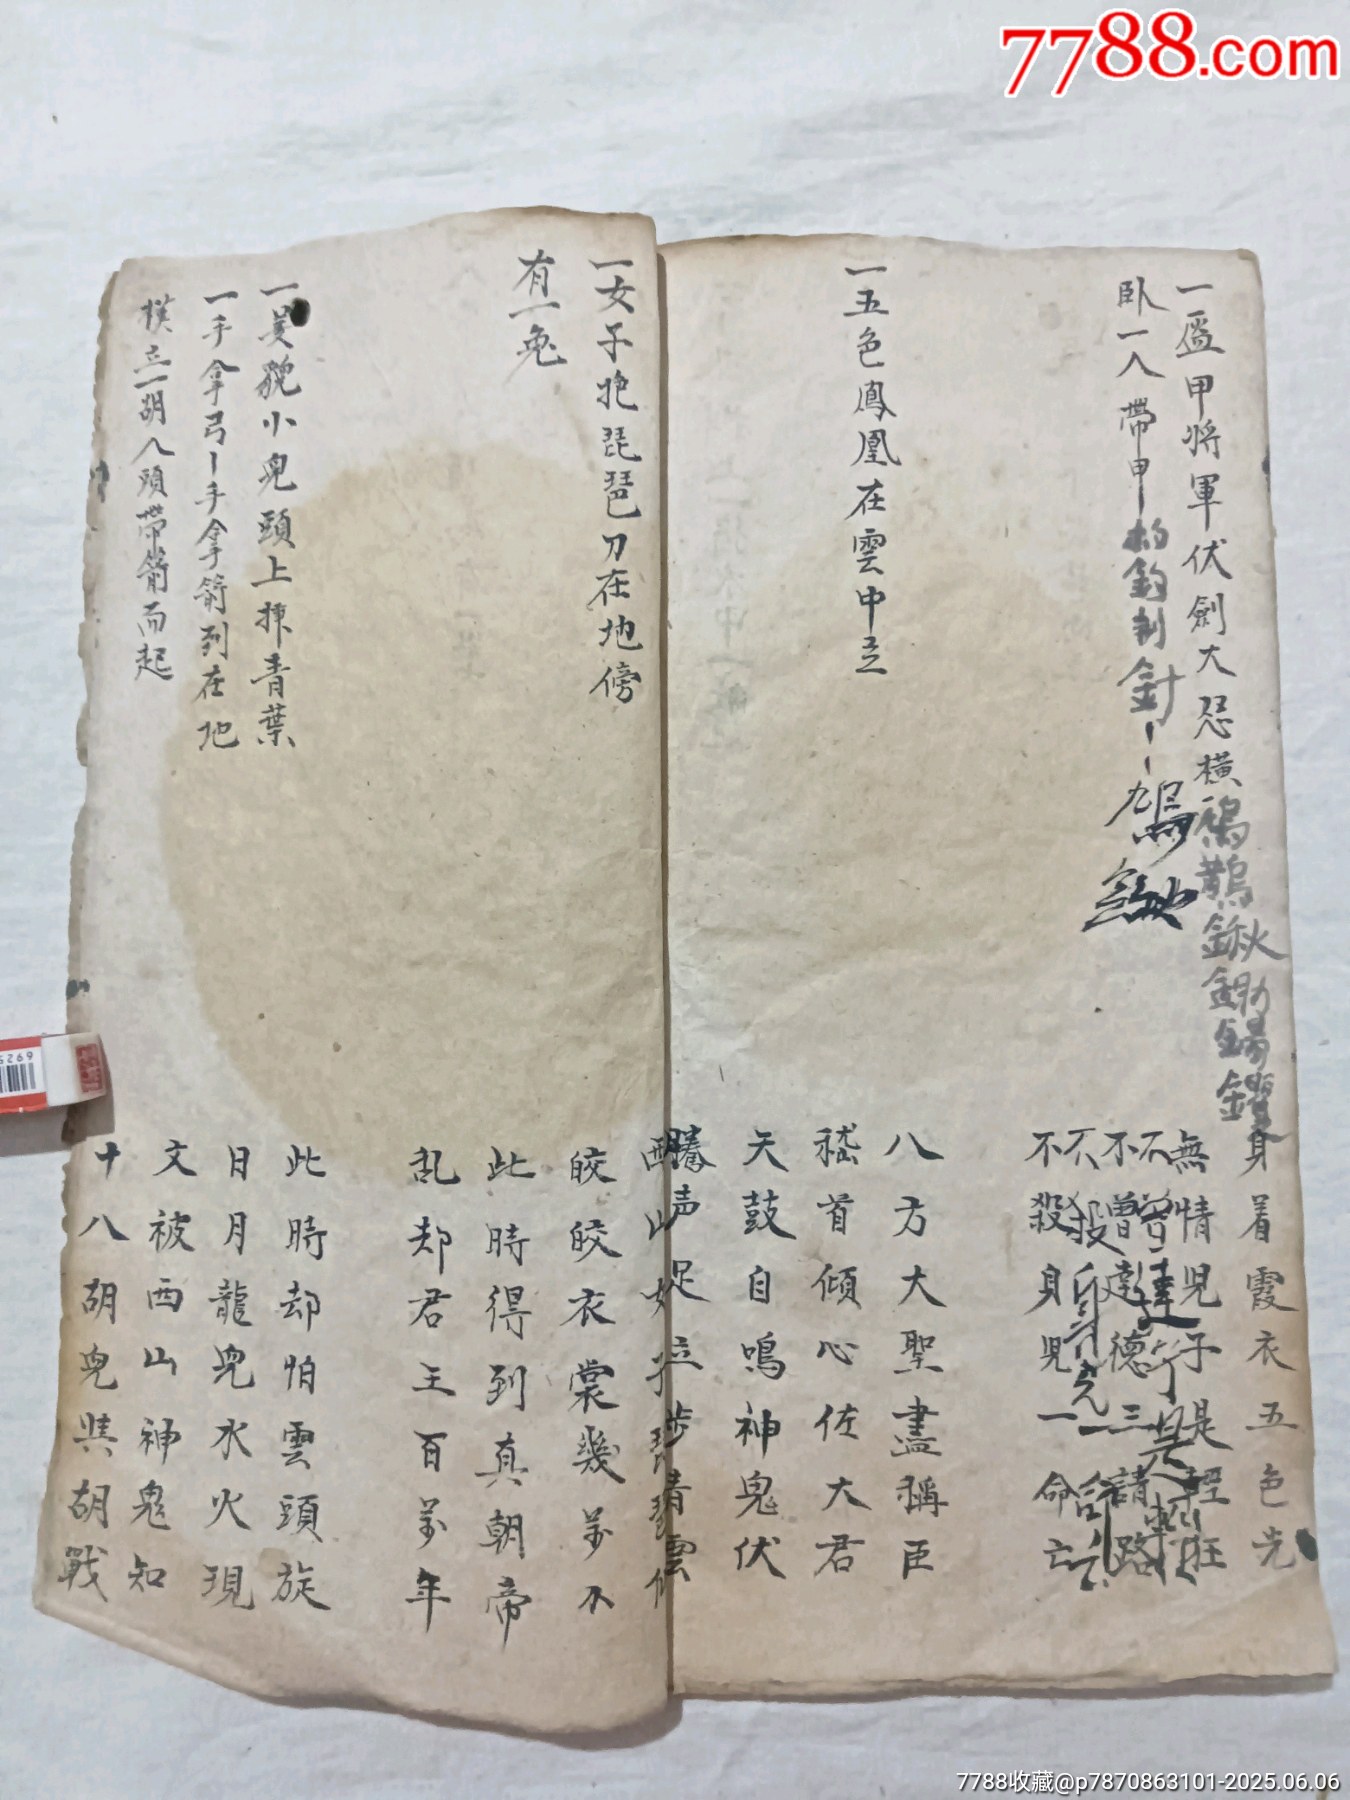 7788.com
一盔甲將軍伏劍大怒橫
卧一人帶甲
身着霞衣五色光
無情兒子是輕狂
不曾達德三請路
不殺身兒一命亡
一五色鳳凰在雲中立
八方大聖盡稱臣
嵇首傾心佐大君
天鼓自鳴神鬼伏
騰声足立步青雲
一女子抱琵琶刀在地傍
有一兔
西山女子琵琶
皎皎衣裳幾萬不
此時得到真朝帝
乱却君王百萬年
一美貌小兒頭上挿青葉
一手拿弓一手拿箭列在地
橫立一胡人頭帶箭而起
此時却怕雲頭旋
日月龍兒水火現
文被西山神鬼知
十八胡兒與胡戰
7788收藏@p7870863101-2025.06.06